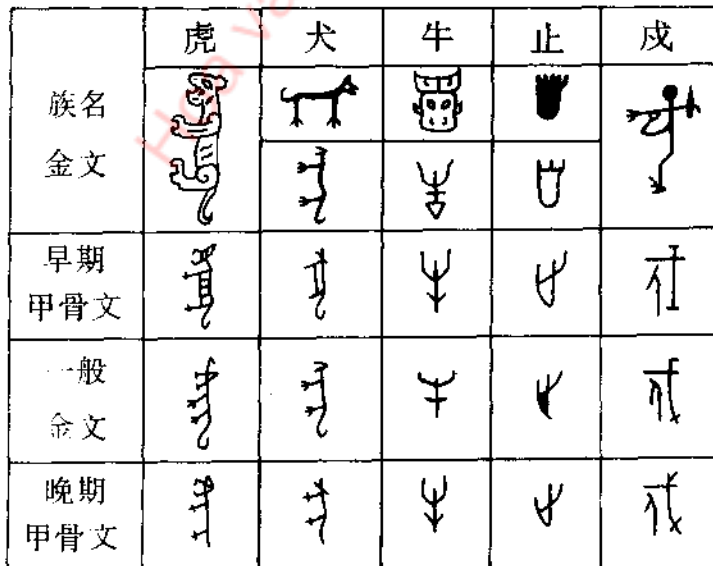 虎 犬 牛 止 戍
族名
金文
早期
甲骨文
一般
金文
晚期
甲骨文